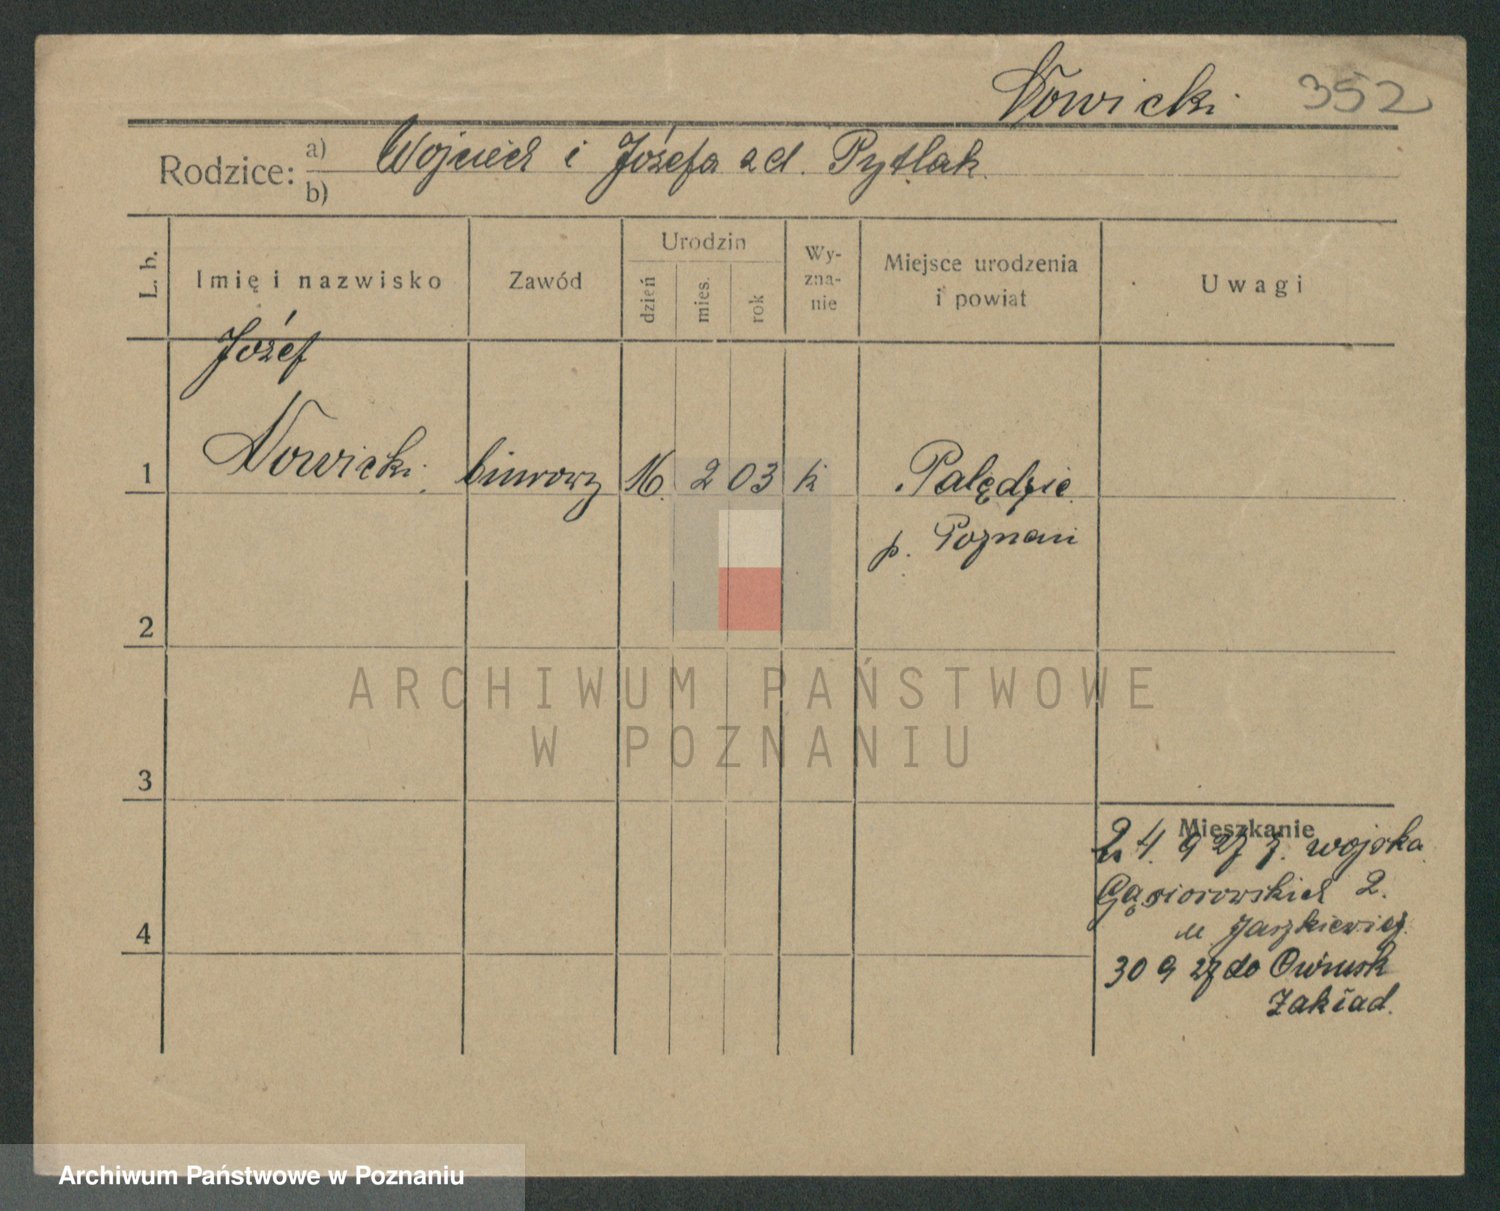 Nowicki 352
Rodzice: a) b) Wojciech i Józefa zd. Pytlak
L. b. Imię i nazwisko Zawód Urodzin dzień mies. rok Wy- zna- nie Miejsce urodzenia i powiat Uwagi
Józef
1 Nowicki biurowy 16. 2 03 k Palędzie
p. Poznań
2
ARCHIWUM PAŃSTWOWE
W POZNANIU
3
Mieszkanie
24. 9 27 z. wojska
Gąsiorowskich 2.
4 u Jaszkiewicz
30 9 27 do Owinsk
Zakład.
Archiwum Państwowe w Poznaniu